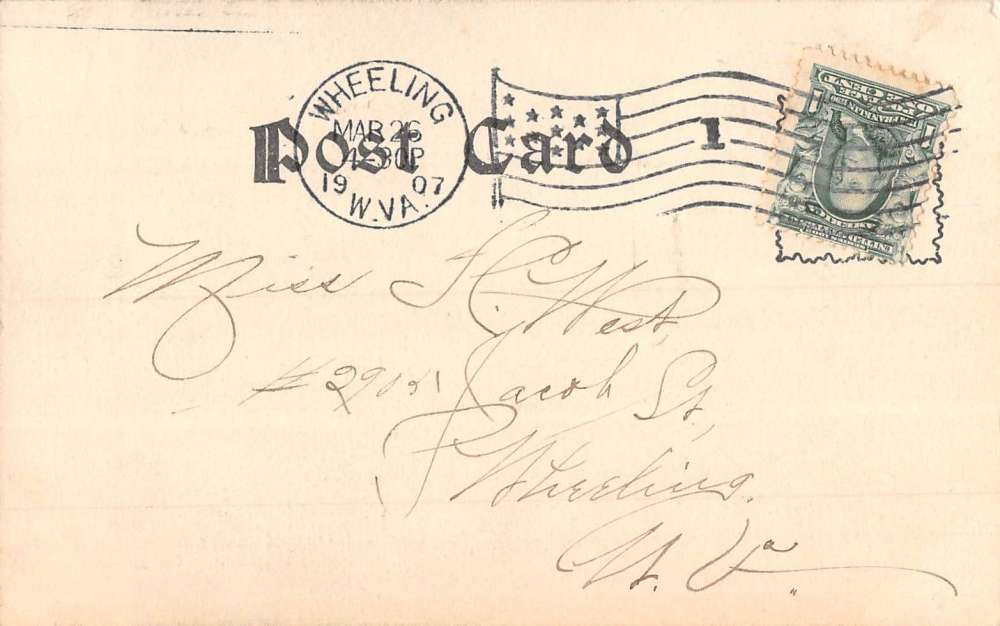 WHEELING
MAR 26
4 30P
19 07
W.VA.
Post Card
1
FRANKLIN
ONE CENT
Miss H. West,
Jacob St.,
Wheeling,
W. Va.